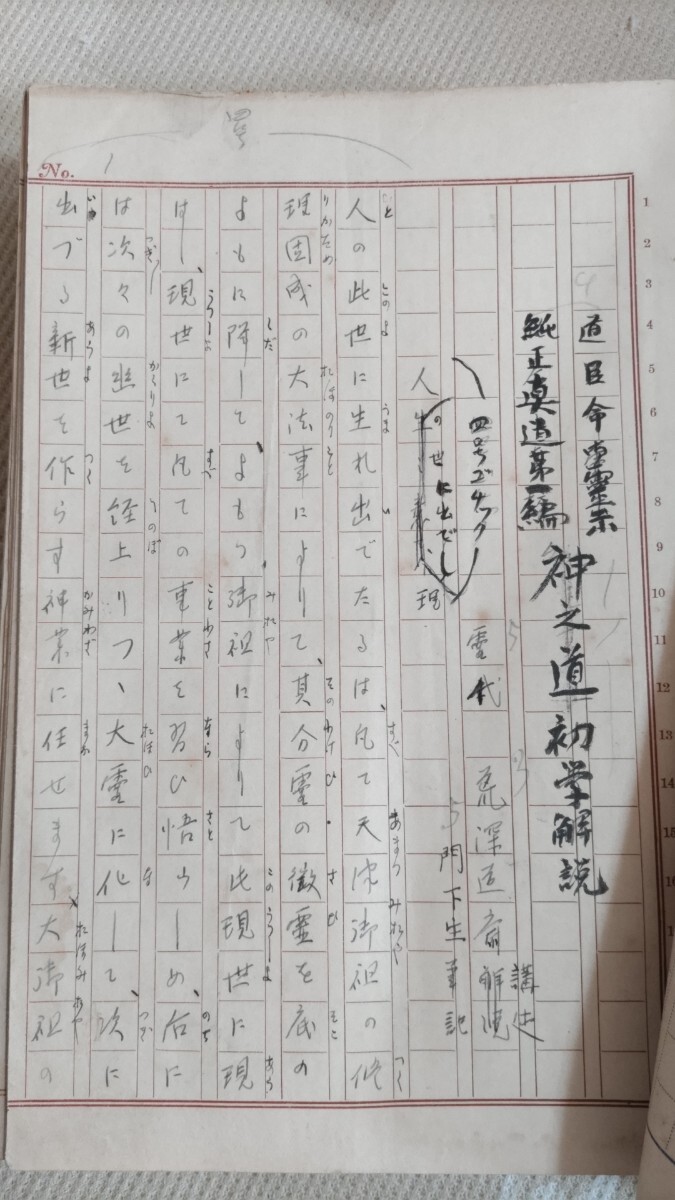 道臣命霊示
純正真道第一編 神之道初学解説
四号ゴチック
霊代 荒深道斉 講述
門下生筆記
人の世に出でし理
人の此世に生れ出でたるは、凡て天津御祖の修
理固成の大法事によりて、其分霊の微霊を底の
よもに降して、よもつ御祖によりて此現世に現
はし、現世にて凡ての事業を習ひ悟らしめ、后に
は次々の幽世を経上りつゝ大霊に化して、次に
出づる新世を作らす神業に任せます。大御祖の
No. 1
1
2
3
4
5
6
7
8
9
10
11
12
13
14
15
16